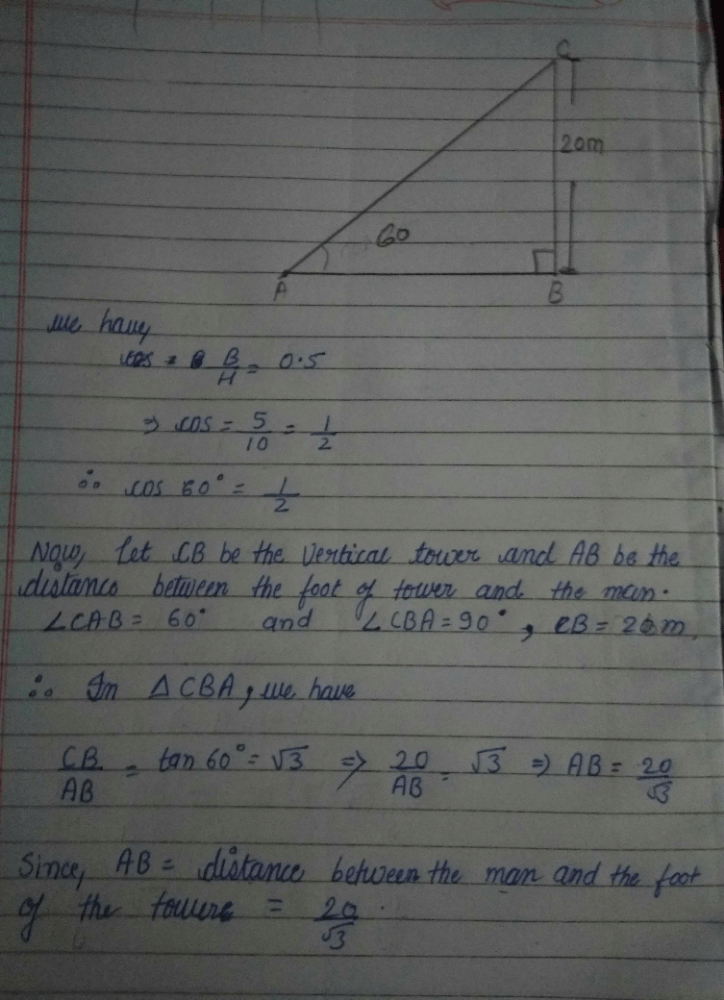 C
20m
60
A
B
we have,
cos = B/H = 0.5
⇒ cos = 5/10 = 1/2
∴ cos 60° = 1/2
Now, let CB be the vertical tower and AB be the
distance between the foot of tower and the man.
∠CAB = 60° and ∠CBA = 90°, CB = 20m.
∴ In △CBA, we have
CB/AB = tan 60° = √3 ⇒ 20/AB = √3 ⇒ AB = 20/√3
Since, AB = distance between the man and the foot
of the tower = 20/√3.